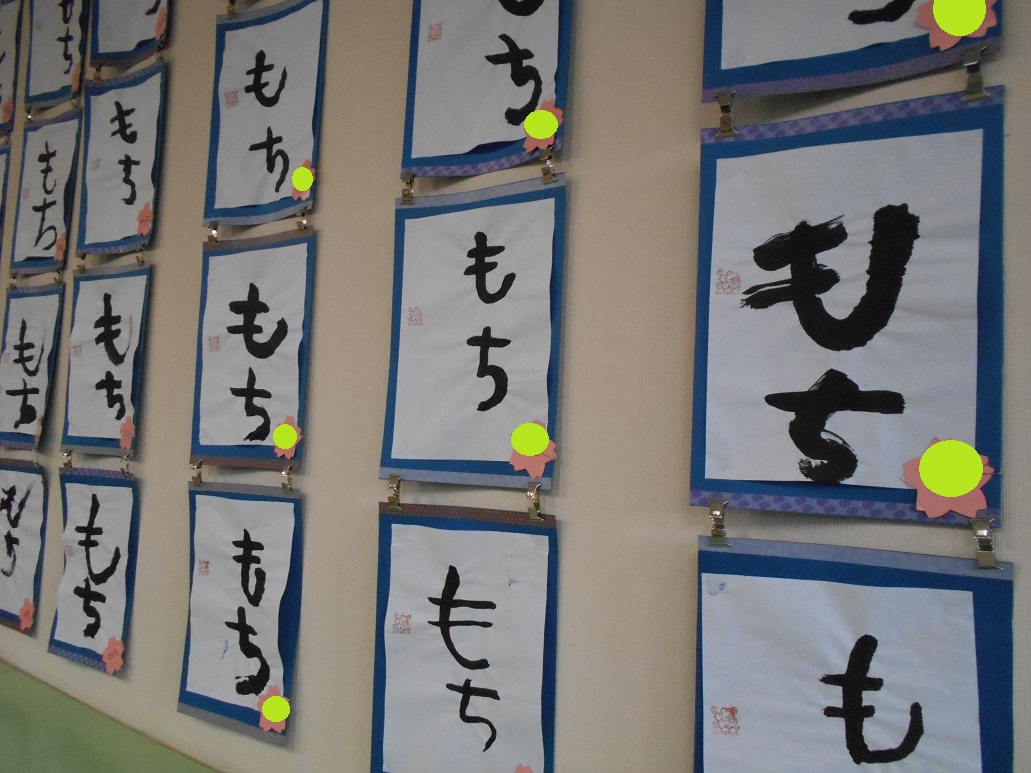 もち
も
ち
もち
もち
もち
もち
もち
もち
もち
もち
もち
もち
もち
もち